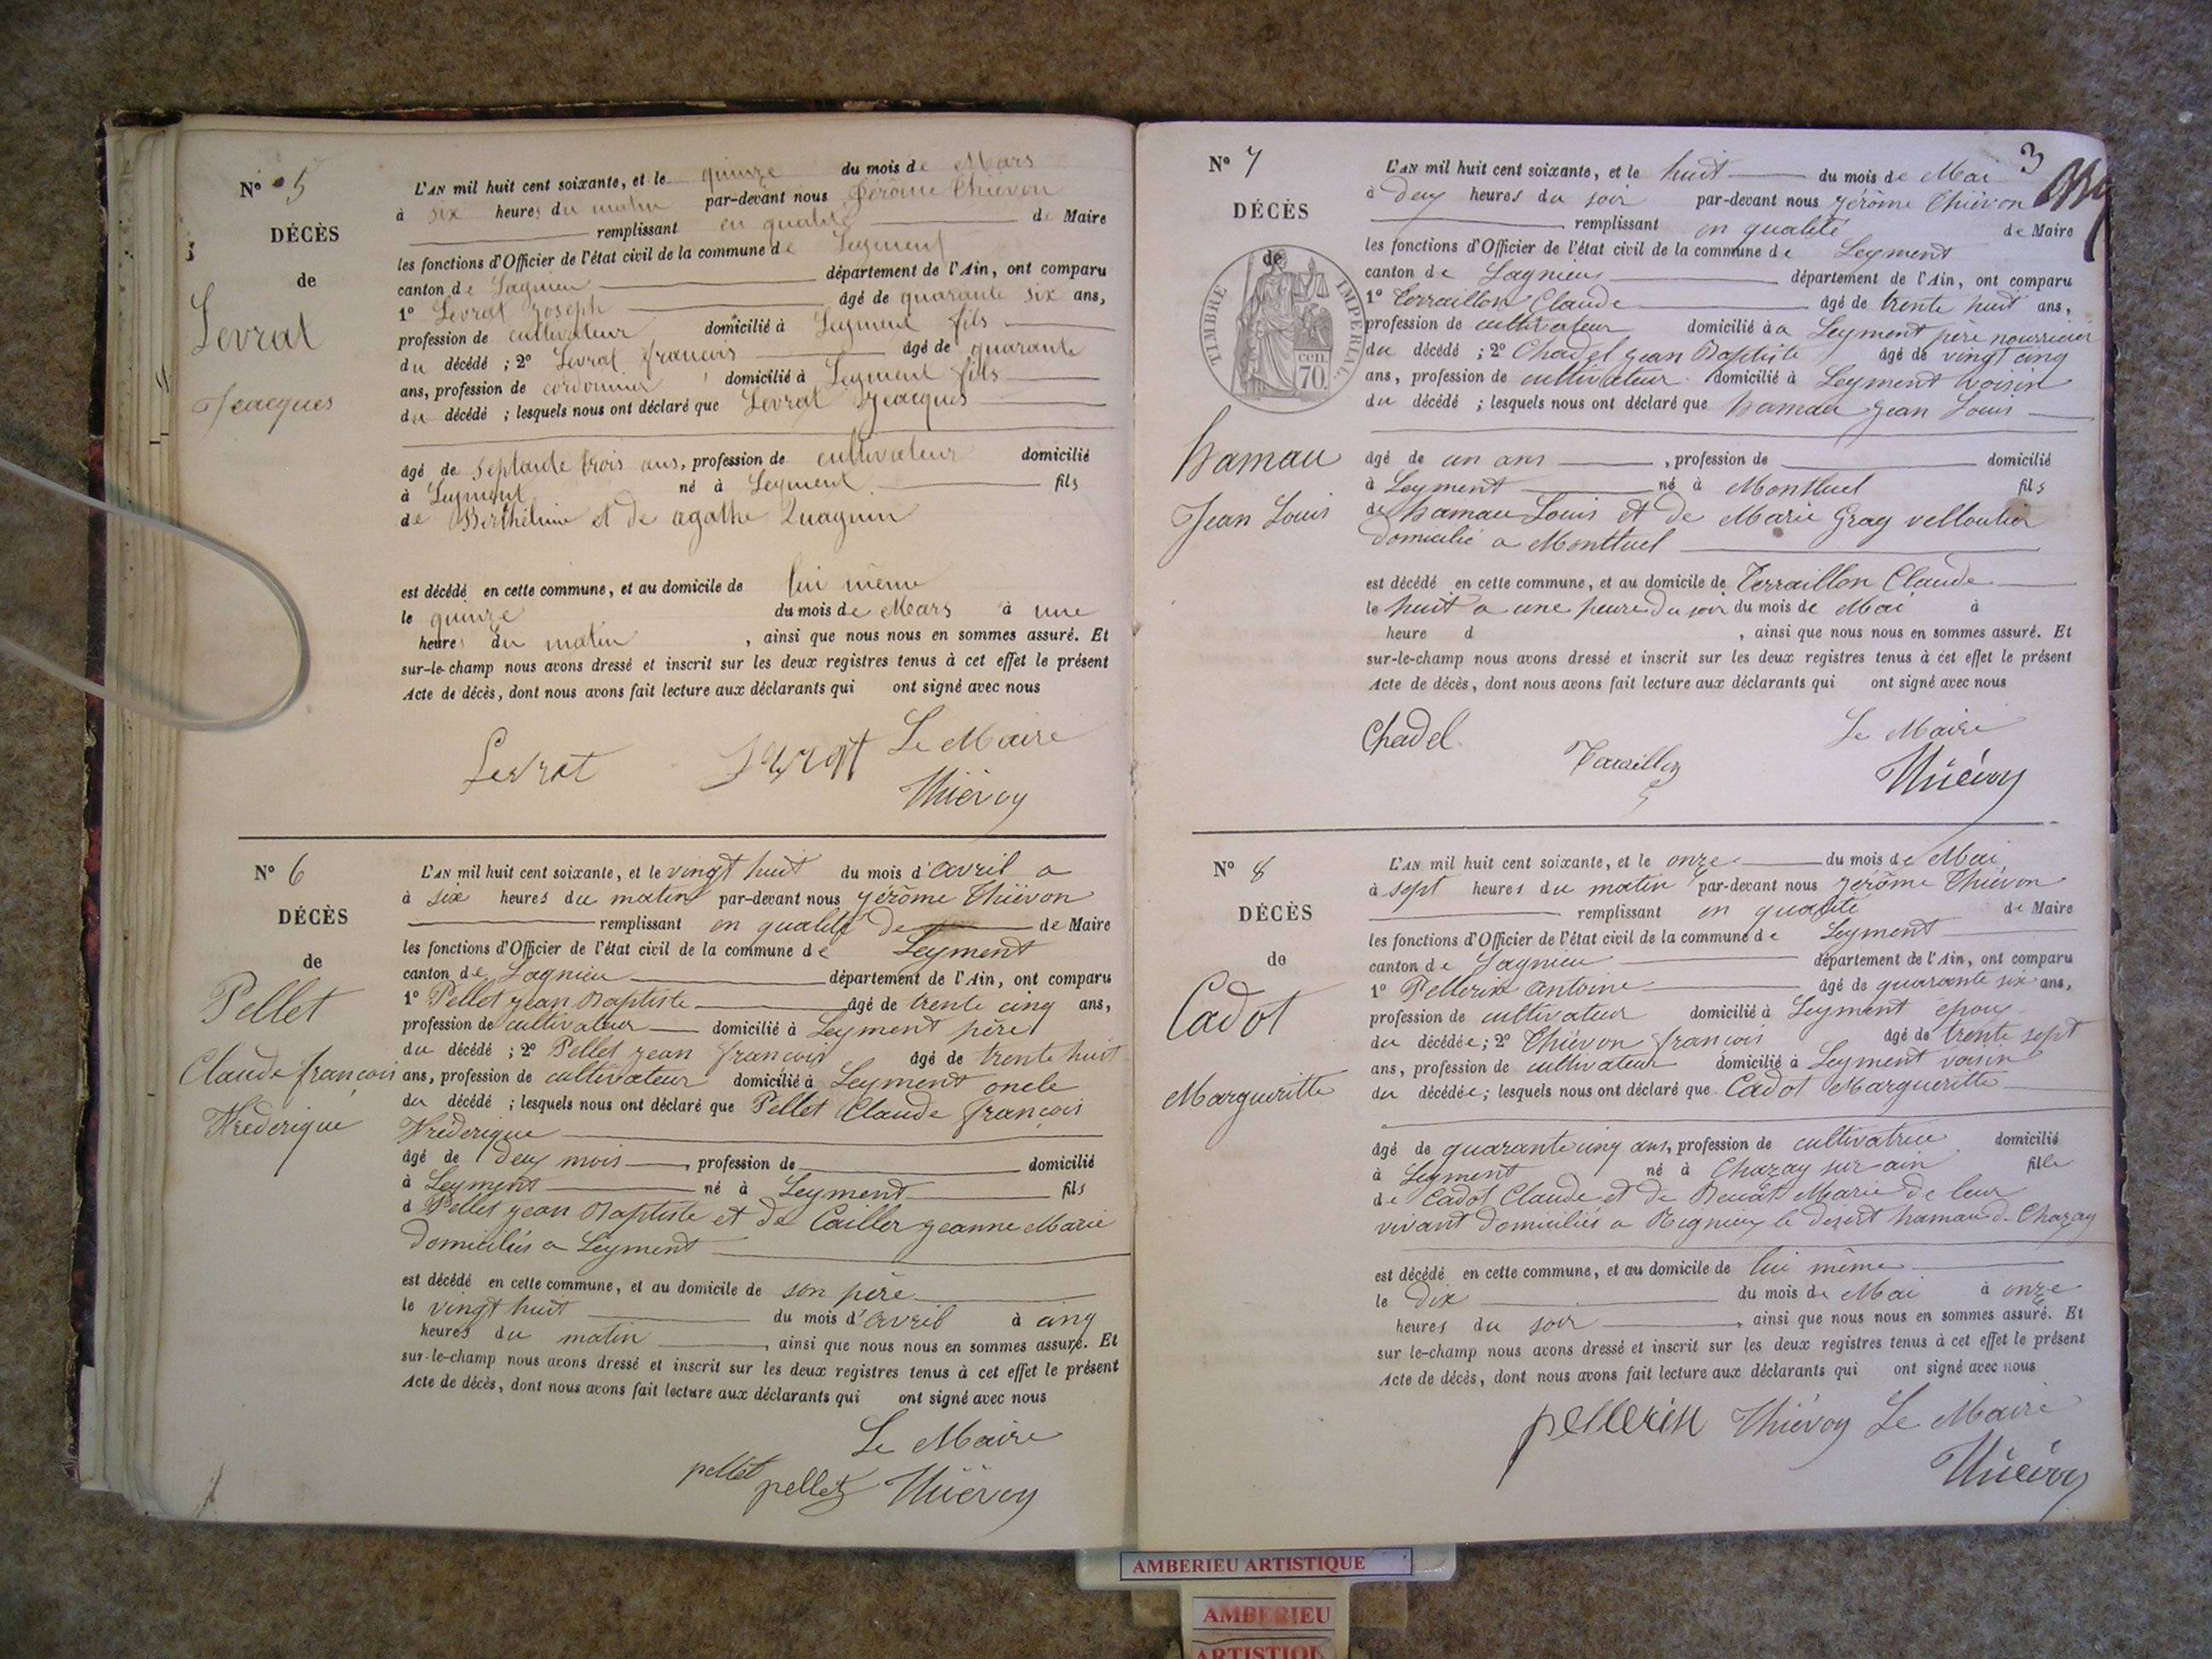 N° 5
DÉCÈS
de
Levrat
Jeacques
L'AN mil huit cent soixante, et le quinze du mois de Mars
à six heures du matin par-devant nous Jérôme Thiévon
remplissant en qualité de Maire
les fonctions d'Officier de l'état civil de la commune de Leyment
canton de Lagnieu département de l'Ain, ont comparu
1° Levrat Joseph âgé de quarante six ans,
profession de cultivateur domicilié à Leyment fils
du décédé ; 2° Levrat françois âgé de quarante
ans, profession de cordonnier domicilié à Leyment fils
du décédé ; lesquels nous ont déclaré que Levrat Jeacques
âgé de septante trois ans, profession de cultivateur domicilié
à Leyment né à Leyment fils
de et de agathe
est décédé en cette commune, et au domicile de lui même
le quinze du mois de Mars à une
heures du matin, ainsi que nous nous en sommes assuré. Et
sur-le-champ nous avons dressé et inscrit sur les deux registres tenus à cet effet le présent
Acte de décès, dont nous avons fait lecture aux déclarants qui ont signé avec nous
Le Maire
Levrat Levrat
Thiévon
N° 6
DÉCÈS
de
Pellet
Claude françois
Fréderique
L'AN mil huit cent soixante, et le vingt huit du mois d'avril a
à six heures du matin par-devant nous Jérôme Thiévon
remplissant en qualité de de Maire
les fonctions d'Officier de l'état civil de la commune de Leyment
canton de Lagnieu département de l'Ain, ont comparu
1° Pellet jean Baptiste âgé de trente cinq ans,
profession de cultivateur domicilié à Leyment père
du décédé ; 2° Pellet jean françois âgé de trente huit
ans, profession de cultivateur domicilié à Leyment oncle
du décédé ; lesquels nous ont déclaré que Pellet Claude françois
Fréderique
âgé de deux mois, profession de domicilié
à Leyment né à Leyment fils
d Pellet jean Baptiste et de Cailler jeanne Marie
domiciliés a Leyment
est décédé en cette commune, et au domicile de son père
le vingt huit du mois d'avril à cinq
heures du matin, ainsi que nous nous en sommes assuré. Et
sur-le-champ nous avons dressé et inscrit sur les deux registres tenus à cet effet le présent
Acte de décès, dont nous avons fait lecture aux déclarants qui ont signé avec nous
Le Maire
pellet pellet Thiévon
3
N° 7
DÉCÈS
de
TIMBRE IMPERIAL
cen.
70.
hamau
Jean Louis
L'AN mil huit cent soixante, et le huit du mois de Mai
à deux heures du soir par-devant nous Jérôme Thiévon
remplissant en qualité de Maire
les fonctions d'Officier de l'état civil de la commune de Leyment
canton de Lagnieu département de l'Ain, ont comparu
1° Terraillon Claude âgé de trente huit ans,
profession de cultivateur domicilié à a Leyment père nourricier
du décédé ; 2° Chadel jean Baptiste âgé de vingt cinq
ans, profession de cultivateur domicilié à Leyment voisin
du décédé ; lesquels nous ont déclaré que hamau jean Louis
âgé de un ans, profession de domicilié
à Leyment né à Montluel fils
de hamau Louis et de Marie
domicilié a Montluel
est décédé en cette commune, et au domicile de Terraillon Claude
le huit a une heure du soir du mois de Mai à
heure d, ainsi que nous nous en sommes assuré. Et
sur-le-champ nous avons dressé et inscrit sur les deux registres tenus à cet effet le présent
Acte de décès, dont nous avons fait lecture aux déclarants qui ont signé avec nous
Chadel. Le Maire
Thiévon
N° 8
DÉCÈS
de
Cadot
Margueritte
L'AN mil huit cent soixante, et le onze du mois de Mai
à sept heures du matin par-devant nous Jérôme Thiévon
remplissant en qualité de Maire
les fonctions d'Officier de l'état civil de la commune de Leyment
canton de Lagnieu département de l'Ain, ont comparu
1° Pellerin antoine âgé de quarante six ans,
profession de cultivateur domicilié à Leyment époux
du décédée ; 2° Thiévon françois âgé de trente sept
ans, profession de cultivateur domicilié à Leyment voisin
du décédée ; lesquels nous ont déclaré que Cadot Margueritte
âgé de quarante cinq ans, profession de cultivatrice domicilié
à Leyment né à Chazay sur ain fille
de Cadot Claude et de Marie de leur
vivant domiciliés a Rignieux le désert hamau d. Chazay
est décédé en cette commune, et au domicile de lui même
le dix du mois de Mai à onze
heures du soir, ainsi que nous nous en sommes assuré. Et
sur le-champ nous avons dressé et inscrit sur les deux registres tenus à cet effet le présent
Acte de décès, dont nous avons fait lecture aux déclarants qui ont signé avec nous
pellerin Thiévon Le Maire
Thiévon
AMBERIEU ARTISTIQUE
AMBERIEU